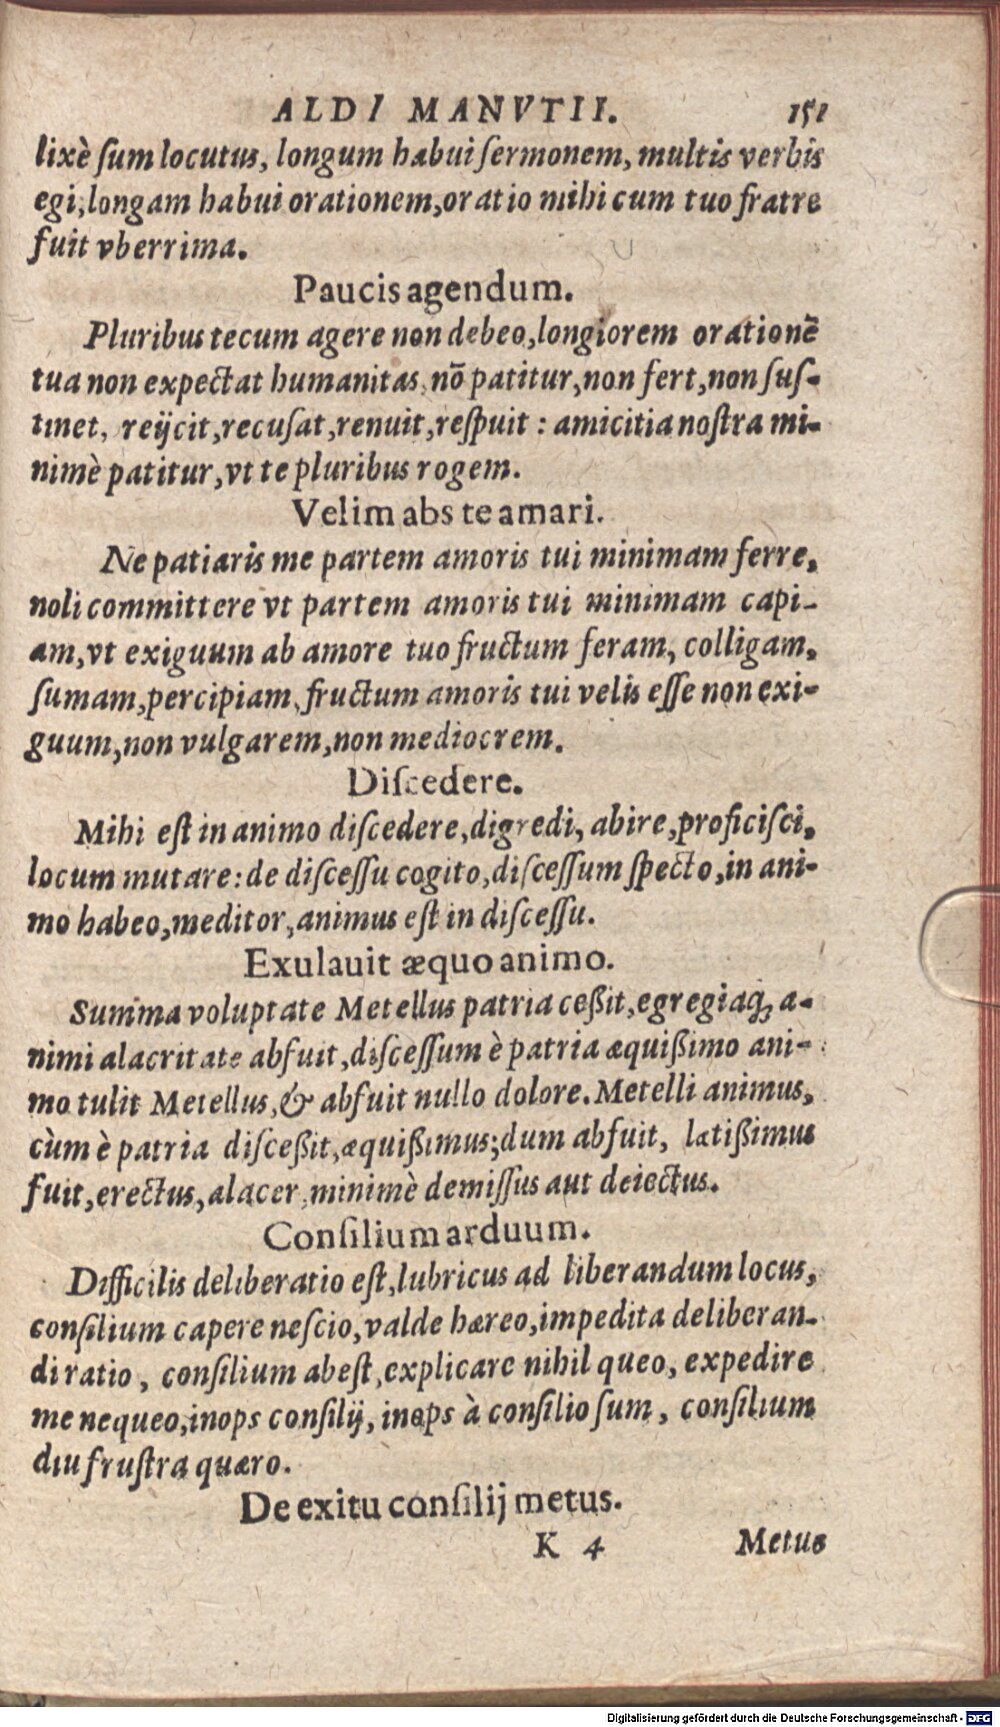 ALDI MANVTII. 151
lixè ſum locutus, longum habui ſermonem, multis verbis
egi, longam habui orationem, oratio mihi cum tuo fratre
fuit vberrima.
Paucis agendum.
Pluribus tecum agere non debeo, longiorem orationē
tua non expectat humanitas, nō patitur, non fert, non ſuſ-
tinet, reijcit, recuſat, renuit, reſpuit : amicitia noſtra mi-
nimè patitur, vt te pluribus rogem.
Velim abs te amari.
Ne patiaris me partem amoris tui minimam ferre,
noli committere vt partem amoris tui minimam capi-
am, vt exiguum ab amore tuo fructum feram, colligam,
ſumam, percipiam, fructum amoris tui velis eſſe non exi-
guum, non vulgarem, non mediocrem.
Diſcedere.
Mihi eſt in animo diſcedere, digredi, abire, proficiſci,
locum mutare: de diſceſſu cogito, diſceſſum ſpecto, in ani-
mo habeo, meditor, animus eſt in diſceſſu.
Exulauit æquo animo.
Summa voluptate Metellus patria ceßit, egregiaq; a-
nimi alacritate abfuit, diſceſſum è patria æquißimo ani-
mo tulit Metellus, & abfuit nullo dolore. Metelli animus,
cùm è patria diſceßit, æquißimus; dum abfuit, lætißimus
fuit, erectus, alacer, minimè demiſſus aut deiectus.
Conſilium arduum.
Difficilis deliberatio eſt, lubricus ad liberandum locus,
conſilium capere neſcio, valde hæreo, impedita deliberan-
di ratio, conſilium abeſt, explicare nihil queo, expedire
me nequeo, inops conſilij, inops à conſilio ſum, conſilium
diu fruſtra quæro.
De exitu conſilij metus.
K 4 Metus
Digitalisierung gefördert durch die Deutsche Forschungsgemeinschaft - DFG